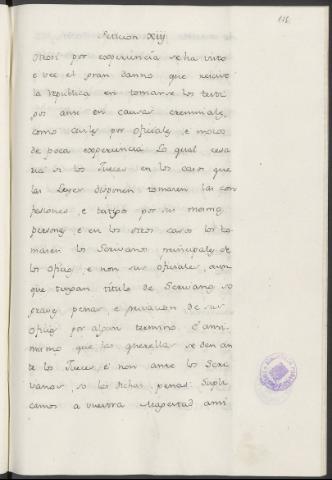 116
Peticion XIIJ
Otrosi por experiencia se ha visto
e vee el gran danno que recive
la republica en tomarse los testi
gos ansi en causas creminales
como civiles por oficiales, e mozos
de poca experiencia Lo qual cesa
ria si los Jueces en los casos que
las Leyes disponen tomasen las con
fesiones, e testigos por sus mismas
personas e en los otros casos los to
masen los Scrivanos principales de
los oficios, e non sus oficiales, aun
que tengan titulo de Scrivano so
graves penas e privacion de sus
oficios por algun termino. E ansi
mismo que las querellas se den an
te los Jueces e non ante los Scri
vanos, so las dichas penas. Supli
camos a vuestra Magestad ansi